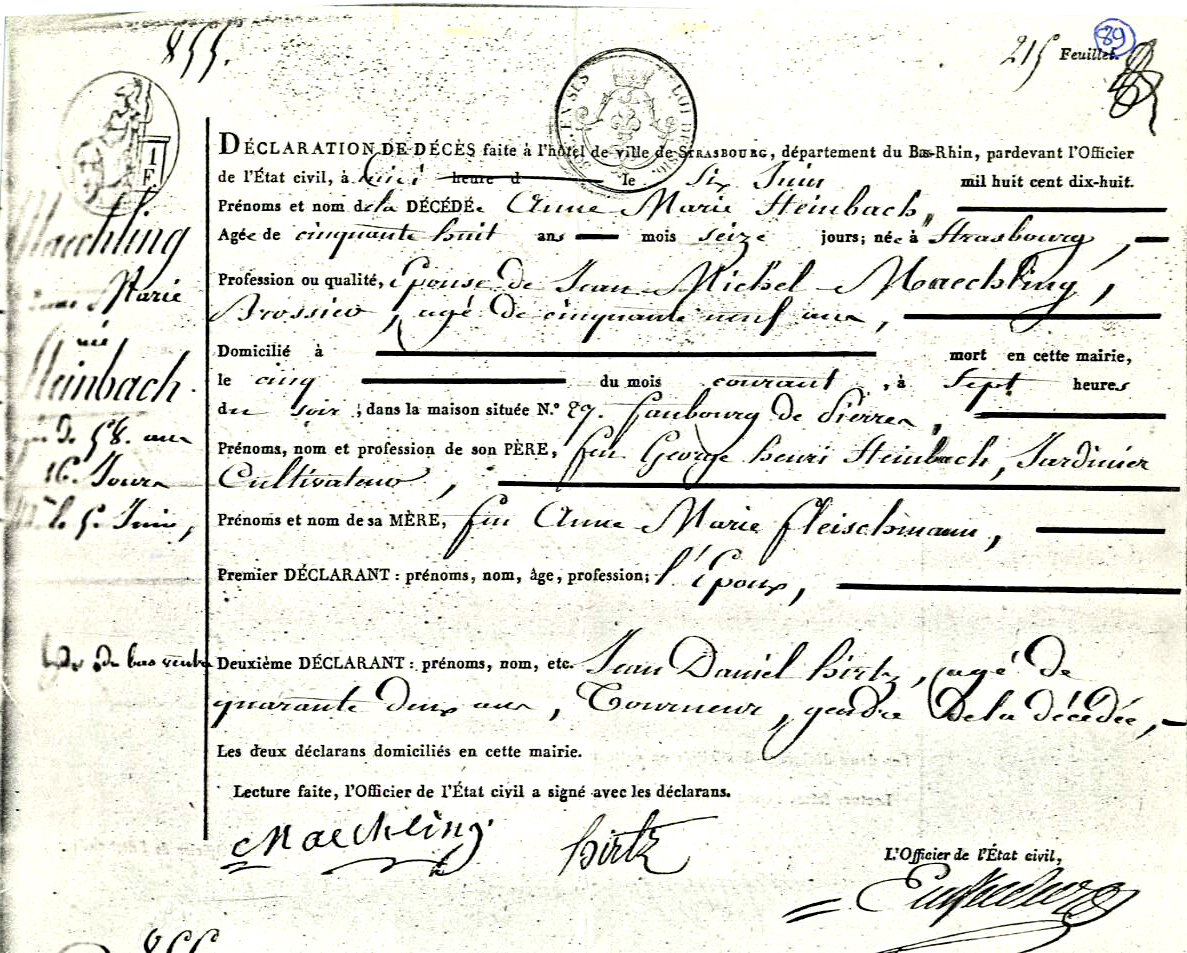 855.
215 Feuillet. 89
EN SES LOI DE
1 F.
DÉCLARATION DE DÉCÈS faite à l'hôtel de ville de STRASBOURG, département du Bas-Rhin, pardevant l'Officier
de l'État civil, à midi heure d le six Juin mil huit cent dix-huit.
Prénoms et nom de la DÉCÉDÉe Anne Marie Steinbach,
Agée de cinquante huit ans mois seize jours; née à Strasbourg,
Profession ou qualité, Epouse de Jean Michel Maechling,
Brossier, agé de cinquante neuf ans,
Domicilié à mort en cette mairie,
le cinq du mois courant, à Sept heures
du soir; dans la maison située N.° 27. faubourg de Pierres,
Prénoms, nom et profession de son PÈRE, feu George henri Steinbach, Jardinier
Cultivateur,
Prénoms et nom de sa MÈRE, feu Anne Marie fleischmann,
Premier DÉCLARANT: prénoms, nom, âge, profession; l'Epoux,
Deuxième DÉCLARANT: prénoms, nom, etc. Jean Daniel hirtz, agé de
quarante deux ans, Tourneur, gendre de la décédée,
Les deux déclarans domiciliés en cette mairie.
Lecture faite, l'Officier de l'État civil a signé avec les déclarans.
Maechling hirtz
L'Officier de l'État civil,
Maechling
Marie
née
Steinbach.
de 58. ans
16. Jours
le 5. Juin,
du bas ventre
856